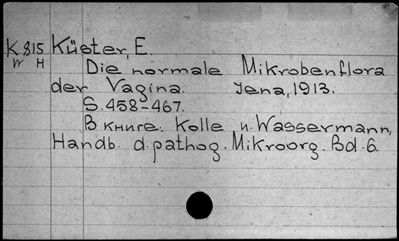 K 815 Küster, E.
W H
Die normale Mikrobenflora
der Vagina. Jena, 1913.
S. 458-467.
В книге. Kolle и. Wassermann,
Handb. d. pathog. Mikroorg. Bd. 6.